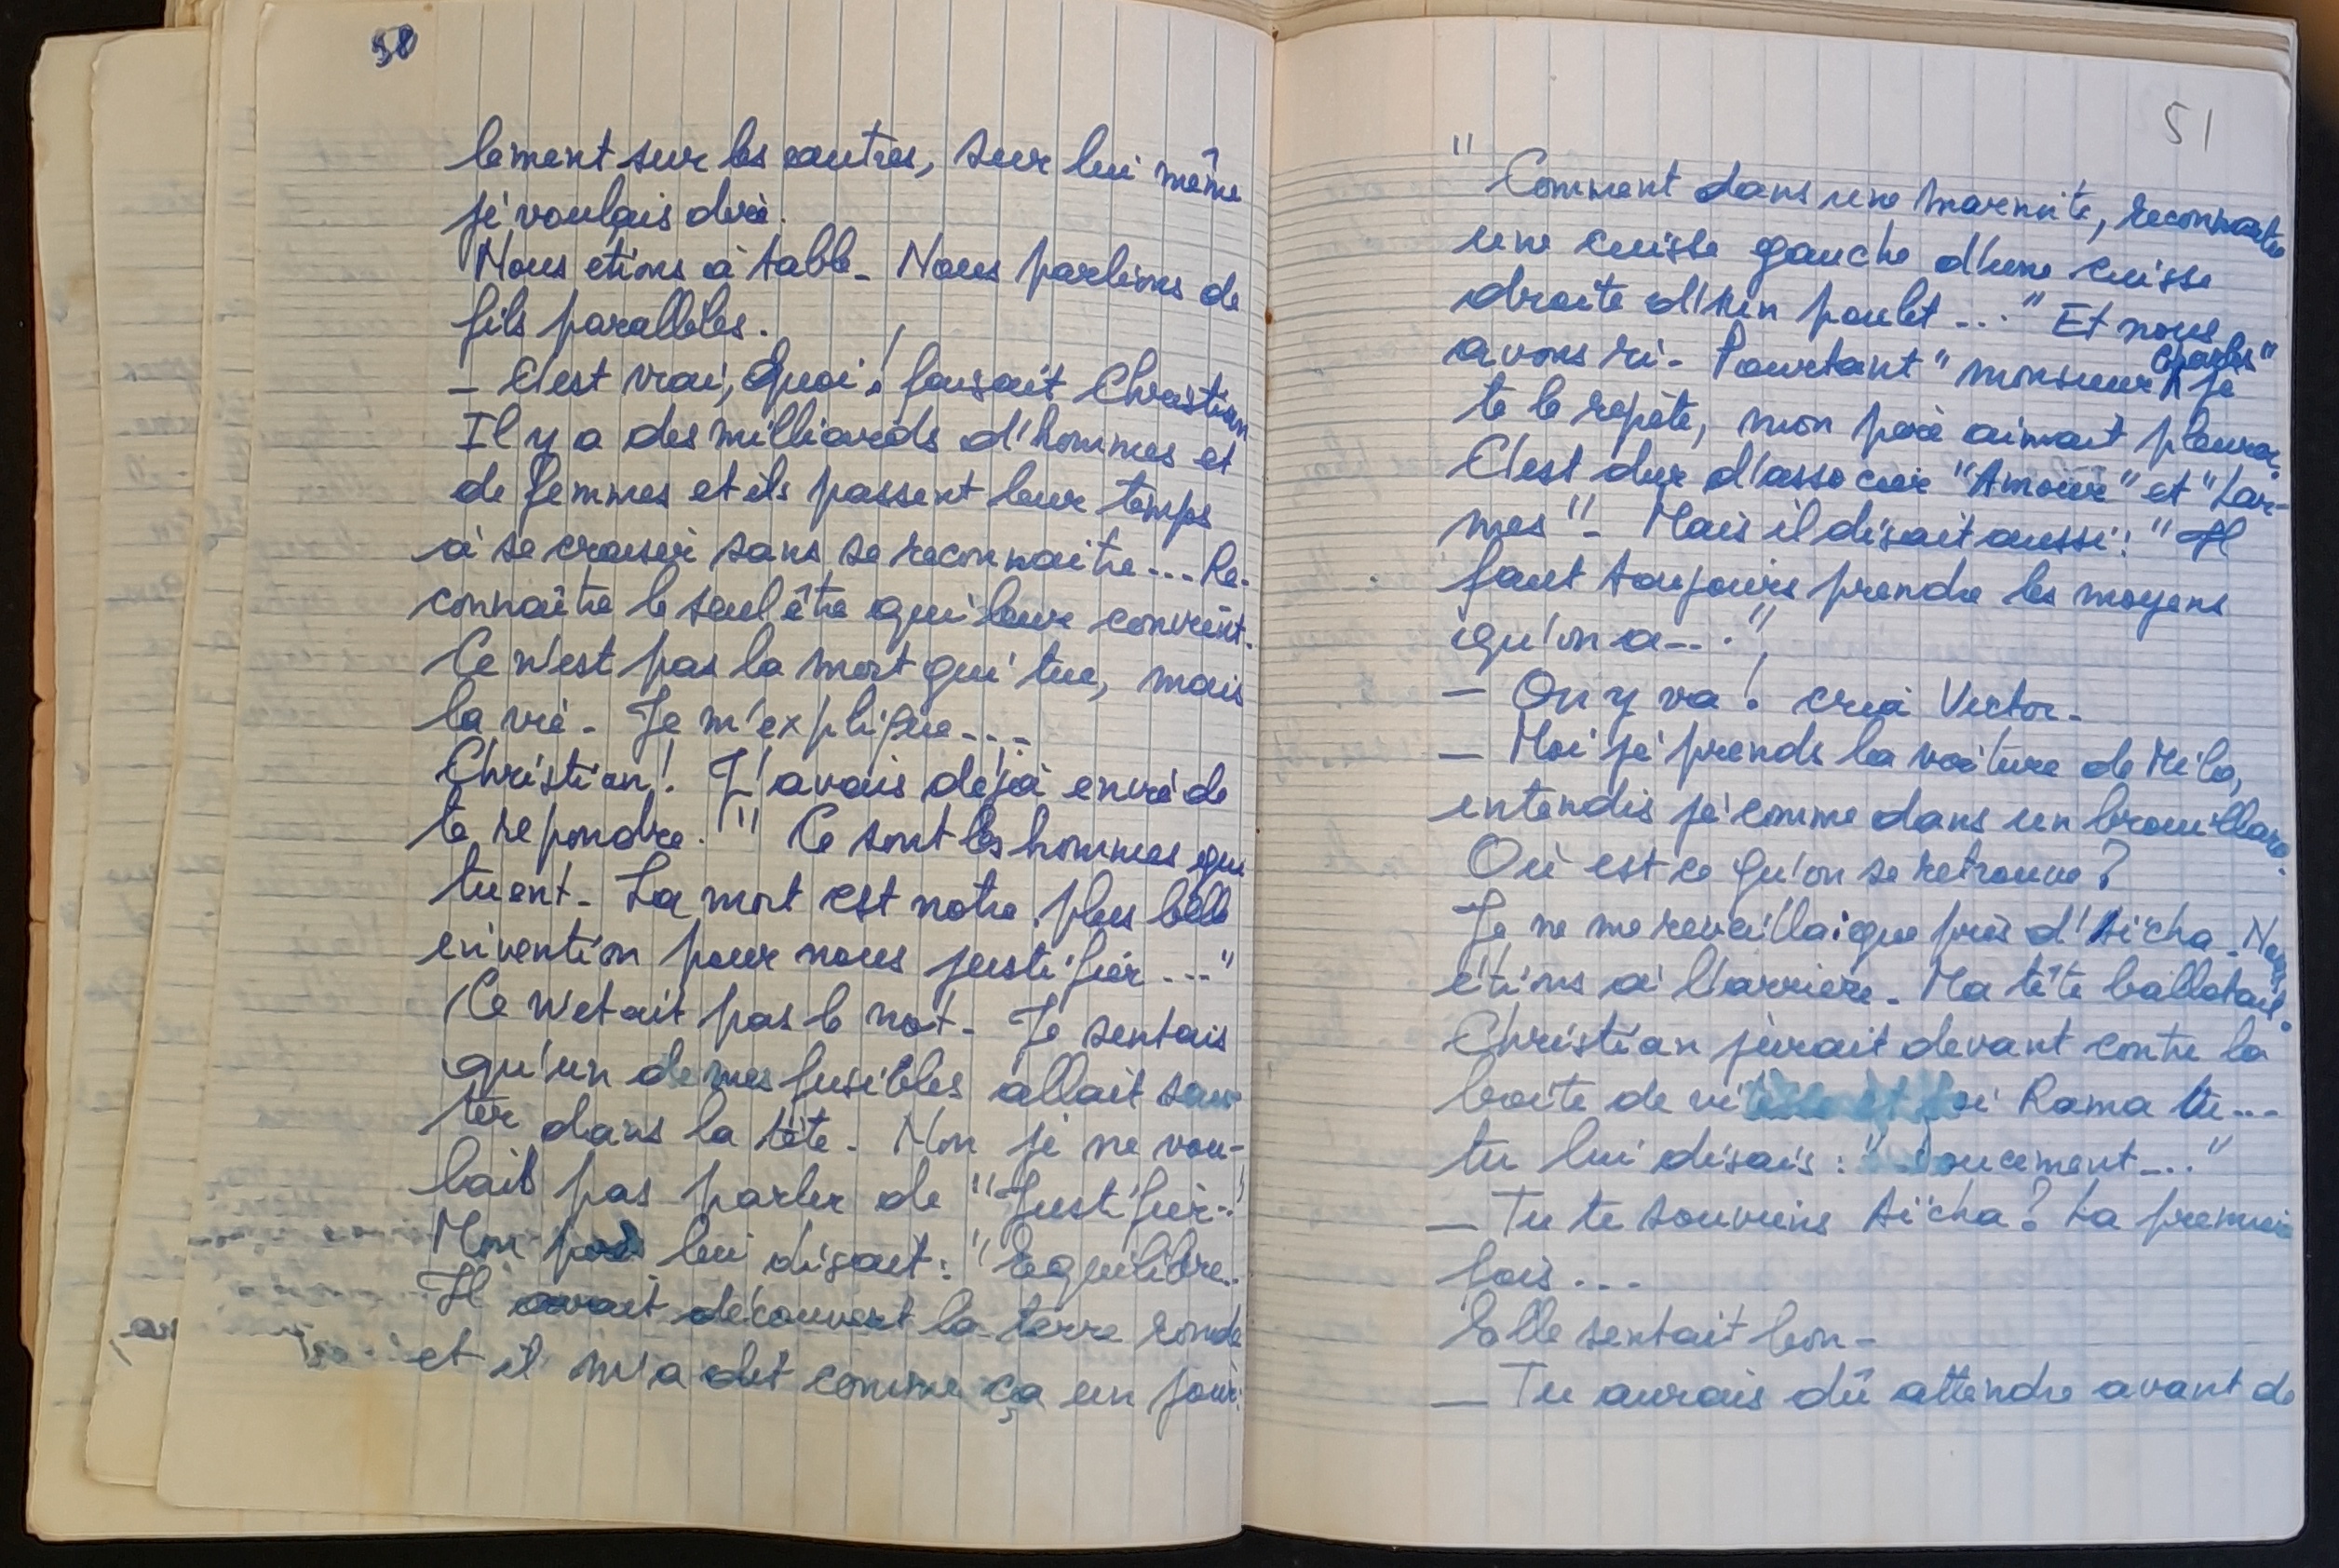 50
lement sur les autres, sur lui même
je voulais dire.
Nous etions à table. Nous parlions de
fils paralleles.
- C'est vrai, Quoi! faisait Christian
Il y a des milliards d'hommes et
de femmes et ils passent leur temps
à se croiser sans se reconnaitre... Re-
connaître le seul être qui leur convient.
Ce n'est pas la mort qui tue, mais
la vie. Je m'explique...
Christian! J'avais déjà envie de
te repondre. " Ce sont les hommes qui
tuent. La mort est notre plus belle
invention pour nous justifier..."
Ce n'etait pas le mot. Je sentais
qu'un de mes fusibles allait sau-
ter dans la tête. Non je ne vou-
lais pas parler de "Justifier."
Mon père lui disait: "Equilibre.
Il avait découvert la terre ronde
et il m'a dit comme ça un jour:
51
" Comment dans une marmite, reconnaitre
une cuisse gauche d'une cuisse
droite d'un poulet..." Et nous
avons ri. Pourtant "monsieur Charles" je
te le repète, mon père aimait pleurer.
C'est dur d'associer "Amour" et "Lar-
mes". Mais il disait aussi: "Il
faut toujours prendre les moyens
qu'on a..."
- On y va! cria Victor.
- Moi je prends la voiture de Milo,
entendis je comme dans un brouillard.
Où est ce qu'on se retrouve?
Je ne me reveillai que près d'Aïcha. Nous
étions à l'arrière. Ma tête ballotait.
Christian jurait devant contre la
boite de Rama tu...
tu lui disais: "doucement..."
- Tu te souviens Aïcha? La premiere
fois...
Elle sentait bon.
- Tu aurais dû attendre avant de